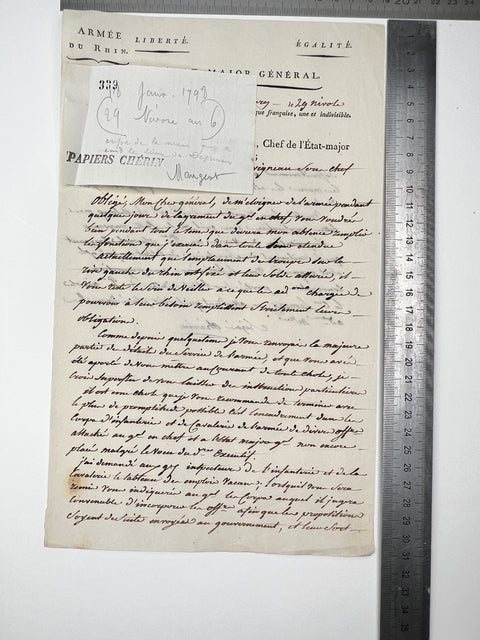 ARMÉE
DU RHIN.
LIBERTÉ.
ÉGALITÉ.
MAJOR GÉNÉRAL.
le 29 nivose
que française, une et indivisible.
, Chef de l'État-major
339
18 Janv. 1798
(29 Nivose an 6)
PAPIERS CHÉRIN
Sous chef
Obligé, Mon Cher général, de m'éloigner de l'armée pendant
quelques jours de l'agrément du gal en chef, Vous Voudrés
bien pendant tout le tems que durera mon absence remplir
les fonctions que j'exerce dans toute leur étendue
actuellement que l'emplacement des troupes sur la
rive gauche du rhin est fixé et leur Solde assurée, il
Vous reste le soin de Veiller à ce que les ad chargées de
pourvoir à leur besoin remplissent Strictement leurs
obligations.
Comme depuis quelque tems je Vous renvoyai la majeure
partie des détails du Service de l'armée et que Vous avés
été à porté de Vous mettre au Courant de toute chose, je
Crois Superflu de vous laisser des instructions particulieres
il est une chose que je Vous recommande de terminer avec
le plus de promptitude possible C'est
Corps d'infanterie et de Cavalerie de l'armée de divers offrs
attaché au gal en chef et à l'état major gal non encore
placé malgré le Voeu du Dre Executif.
j'ai demandé aux gaux inspecteurs de l'infanterie et de la
Cavalerie le tableau des emplois Vacans; lorsqu'il Vous Sera
remis Vous indiquerés au gal les Corps auquel il jugera
Convenable d'incorporer les offrs afin que les propositions
Soyent de Suite envoyées au gouvernement, et leur Sort